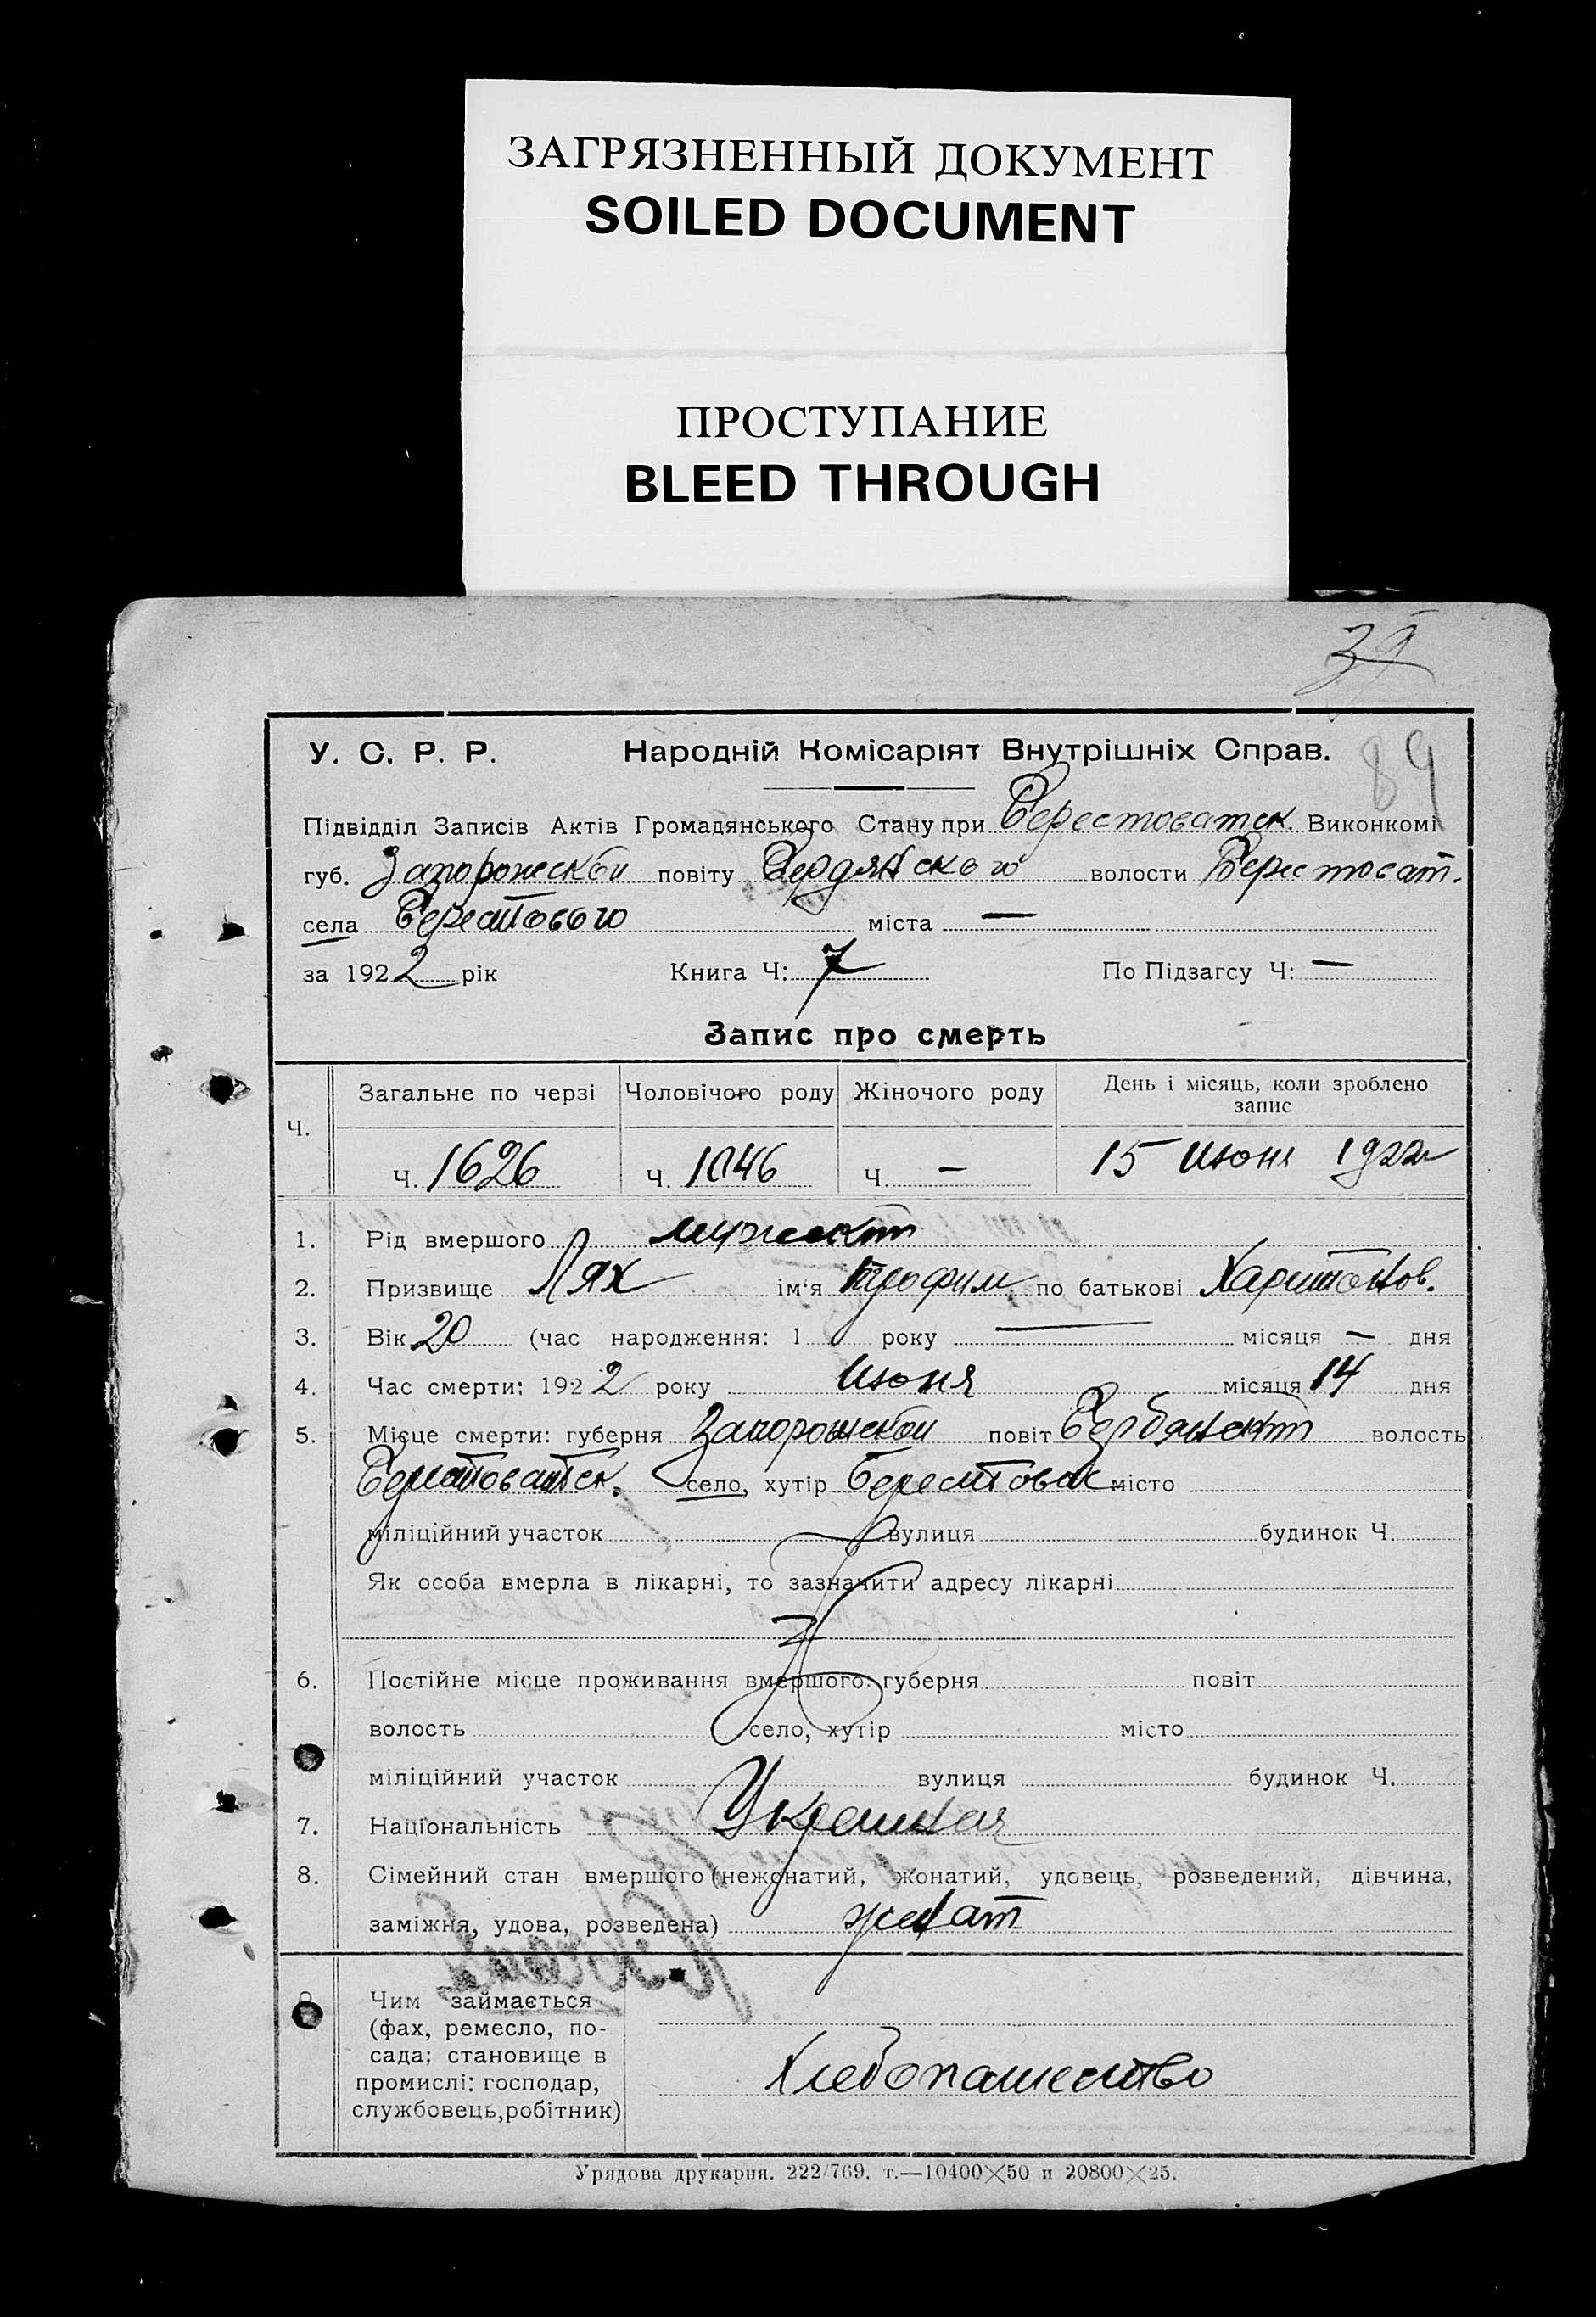 ЗАГРЯЗНЕННЫЙ ДОКУМЕНТ
SOILED DOCUMENT
ПРОСТУПАНИЕ
BLEED THROUGH
39
89
У. С. Р. Р. Народній Комісаріят Внутрішніх Справ.
Підвідділ Записів Актів Громадянського Стану при Берестоватск. Виконкомі
губ. Запорожской повіту Бердянского волости Берестоват.
села Берестового міста —
за 1922 рік Книга Ч: 7 По Підзагсу Ч: —
Запис про смерть
Ч. Загальне по черзі Чоловічого роду Жіночого роду День і місяць, коли зроблено запис
Ч. 1626 Ч. 1046 Ч. — 15 Июня 1922 г
1. Рід вмершого мужск
2. Призвище Лях ім'я Трофим по батькові Харитонов.
3. Вік 20 (час народження: 1 року — місяця — дня
4. Час смерти: 1922 року Июня місяця 14 дня
5. Місце смерти: губерня Запорожской повіт Бердянск волость
Берестоватск. село, хутір Берестовое місто
міліційний участок вулиця будинок Ч.
Як особа вмерла в лікарні, то зазначити адресу лікарні
6. Постійне місце проживання вмершого: губерня повіт
волость село, хутір місто
міліційний участок вулиця будинок Ч.
7. Національність Украинец
8. Сімейний стан вмершого (нежонатий, жонатий, удовець, розведений, дівчина,
заміжня, удова, розведена) женат
9. Чим займається
(фах, ремесло, по-
сада; становище в
промислі: господар,
службовець, робітник)
Хлебопашество
Урядова друкарня. 222/769. т.—10400×50 и 20800×25.